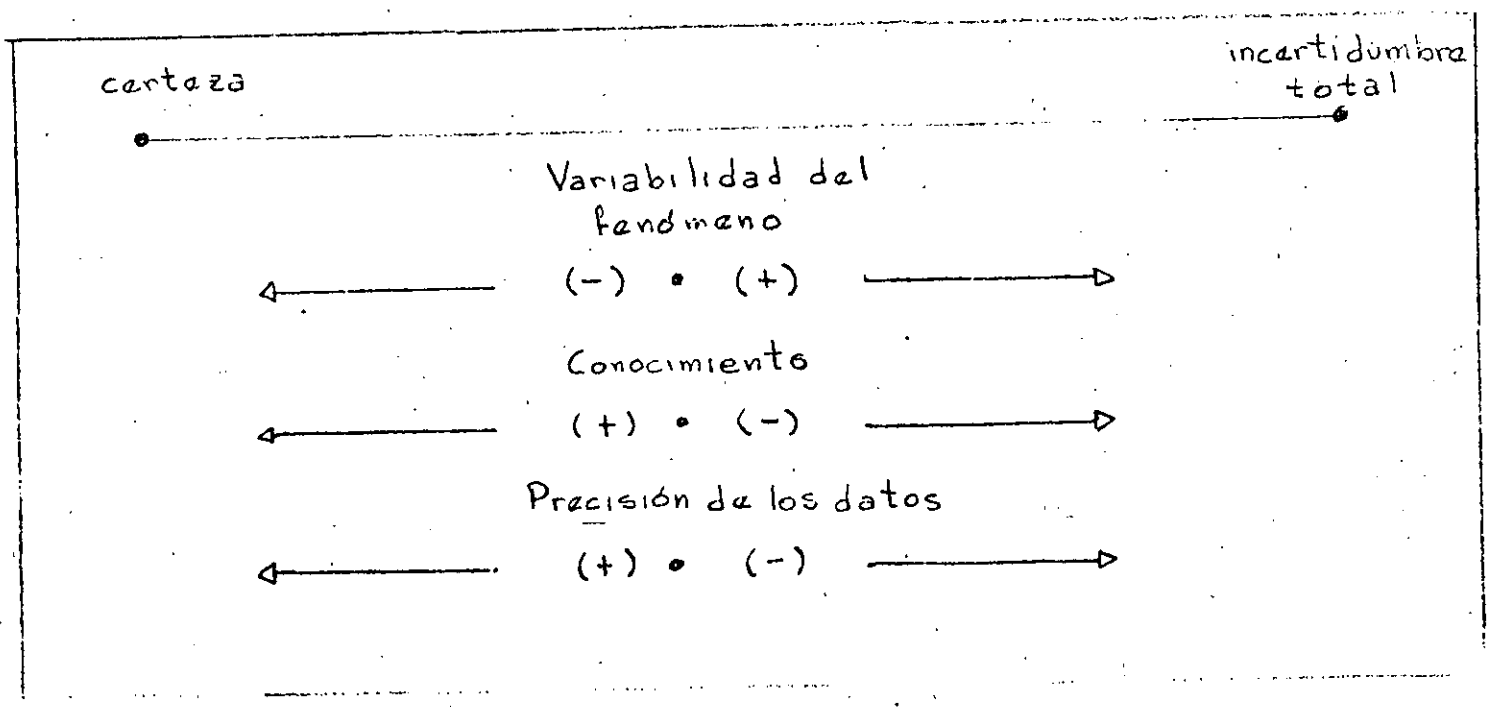 certeza
incertidumbre
total
Variabilidad del
fenómeno
(-) • (+)
Conocimiento
(+) • (-)
Precisión de los datos
(+) • (-)